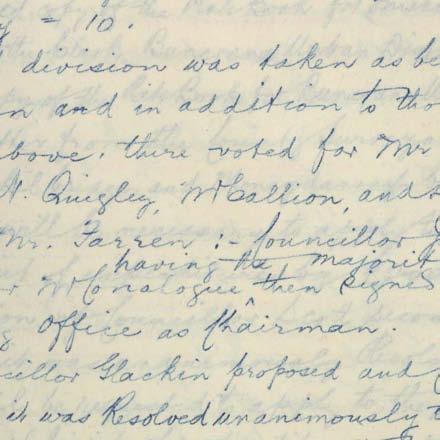 = 10.
division was taken as be
n and in addition to tho
bove, there voted for Mr
H. Quigley, McCallion, and
Mr. Farren :- Councillor
having the majorit
McConalogue then signed
g office as Chairman.
cillor Glackin proposed and
it was Resolved unanimously